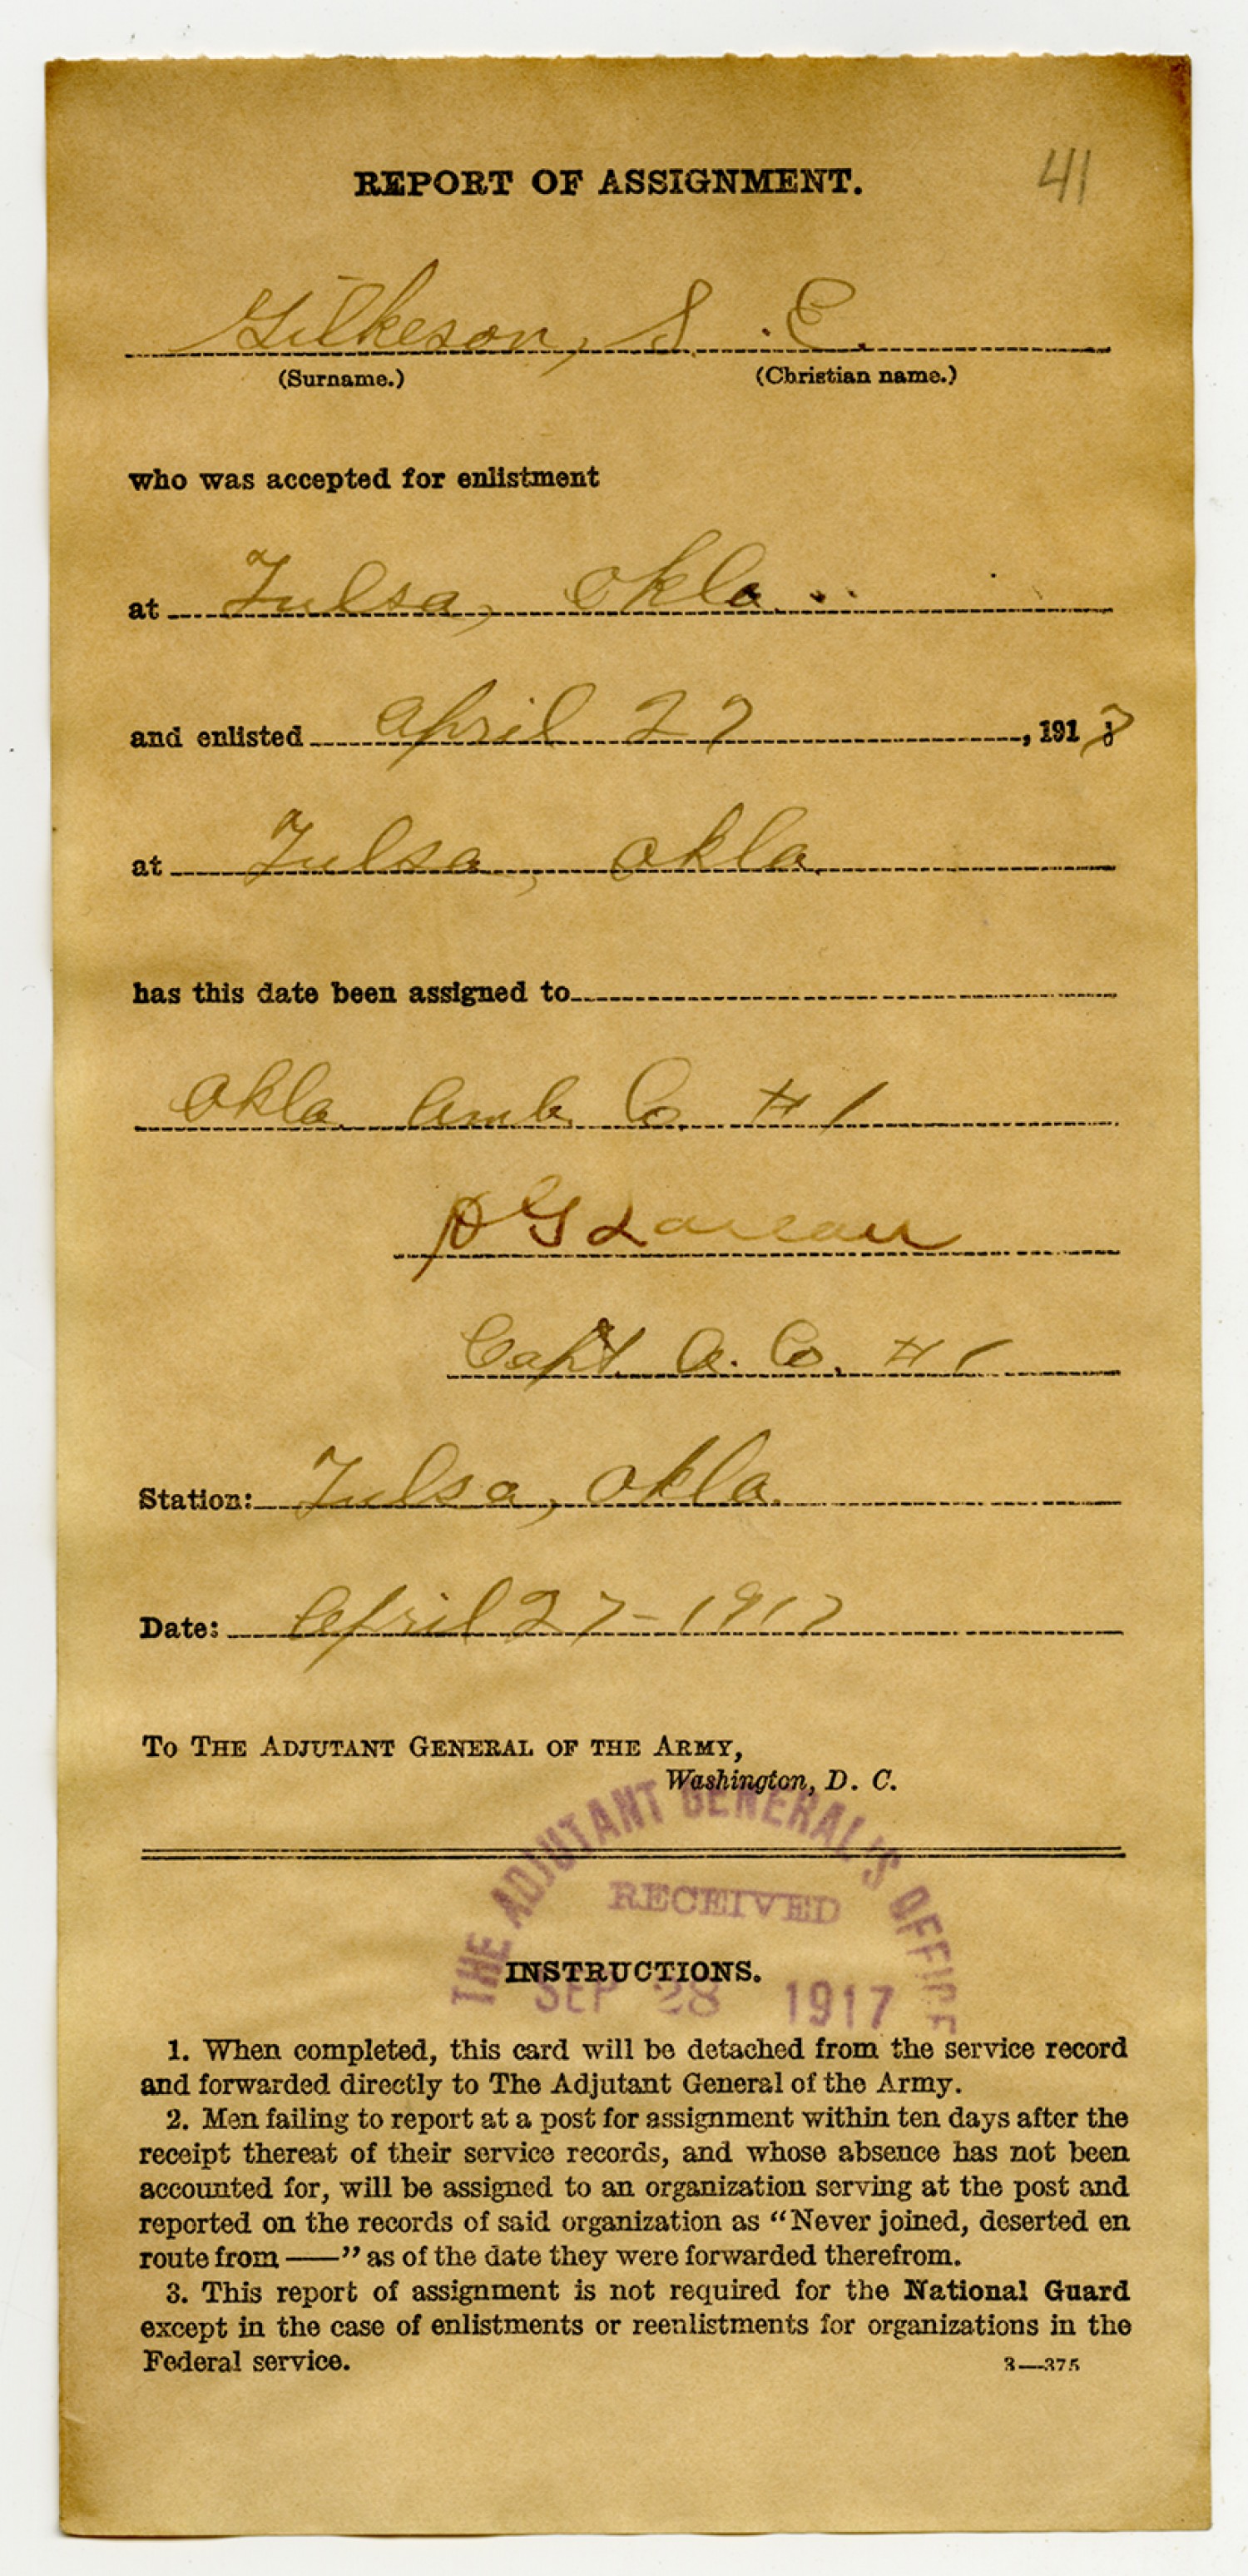 REPORT OF ASSIGNMENT.
41
Gilkeson, S. E.
(Surname.) (Christian name.)
who was accepted for enlistment
at Tulsa, Okla.
and enlisted April 27, 1917
at Tulsa, Okla.
has this date been assigned to
Okla. Amb. Co. #1
Capt. A. Co. #1
Station: Tulsa, Okla.
Date: April 27-1917
To THE ADJUTANT GENERAL OF THE ARMY,
Washington, D. C.
THE ADJUTANT GENERAL'S OFFICE
RECEIVED
INSTRUCTIONS.
SEP 28 1917
1. When completed, this card will be detached from the service record
and forwarded directly to The Adjutant General of the Army.
2. Men failing to report at a post for assignment within ten days after the
receipt thereat of their service records, and whose absence has not been
accounted for, will be assigned to an organization serving at the post and
reported on the records of said organization as “Never joined, deserted en
route from ——” as of the date they were forwarded therefrom.
3. This report of assignment is not required for the National Guard
except in the case of enlistments or reenlistments for organizations in the
Federal service.
3—375